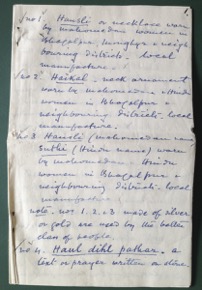 no 1. Hansli or necklace worn
by mohomedan women in
Bhagalpur, Monghyr & neigh
bouring districts. Local
manufacture.
no 2. Haikal. neck ornament
worn by mohomedan & Hindu
women in Bhagalpur &
neighbouring districts. Local
manufacture.
no 3 Hansli (mohomedan name
Sutli (Hindu name) worn
by mohomedan & Hindu
women in Bhagalpur &
neighbouring districts. Local
manufacture
note. nos 1. 2. & 3 made of silver
or gold are used by the better
class of people.
no 4. Haul dihl pathar. a
text or prayer written on stone